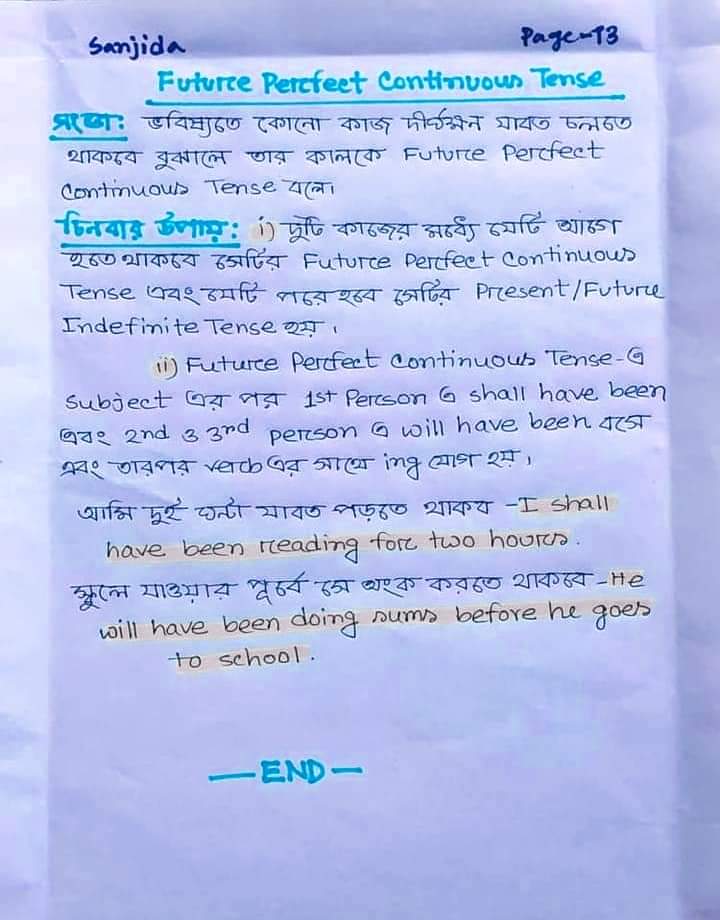 Sanjida
Page-13
Future Perfect Continuous Tense
সংজ্ঞা: ভবিষ্যতে কোনো কাজ দীর্ঘক্ষন যাবত চলতে
থাকবে বুঝালে তার কালকে Future Perfect
Continuous Tense বলে।
চিনবার উপায়: i) দুটি কাজের মধ্যে যেটি আগে
হতে থাকবে সেটির Future Perfect Continuous
Tense এবং যেটি পরে হবে সেটির Present/Future
Indefinite Tense হয়।
ii) Future Perfect Continuous Tense-এ
subject এর পর 1st Person এ shall have been
এবং 2nd ও 3rd person এ will have been বসে
এবং তারপর verb এর সাথে ing যোগ হয়।
আমি দুই ঘন্টা যাবত পড়তে থাকব - I shall
have been reading for two hours.
স্কুলে যাওয়ার পূর্বে সে অংক করতে থাকবে - He
will have been doing sums before he goes
to school.
— END —